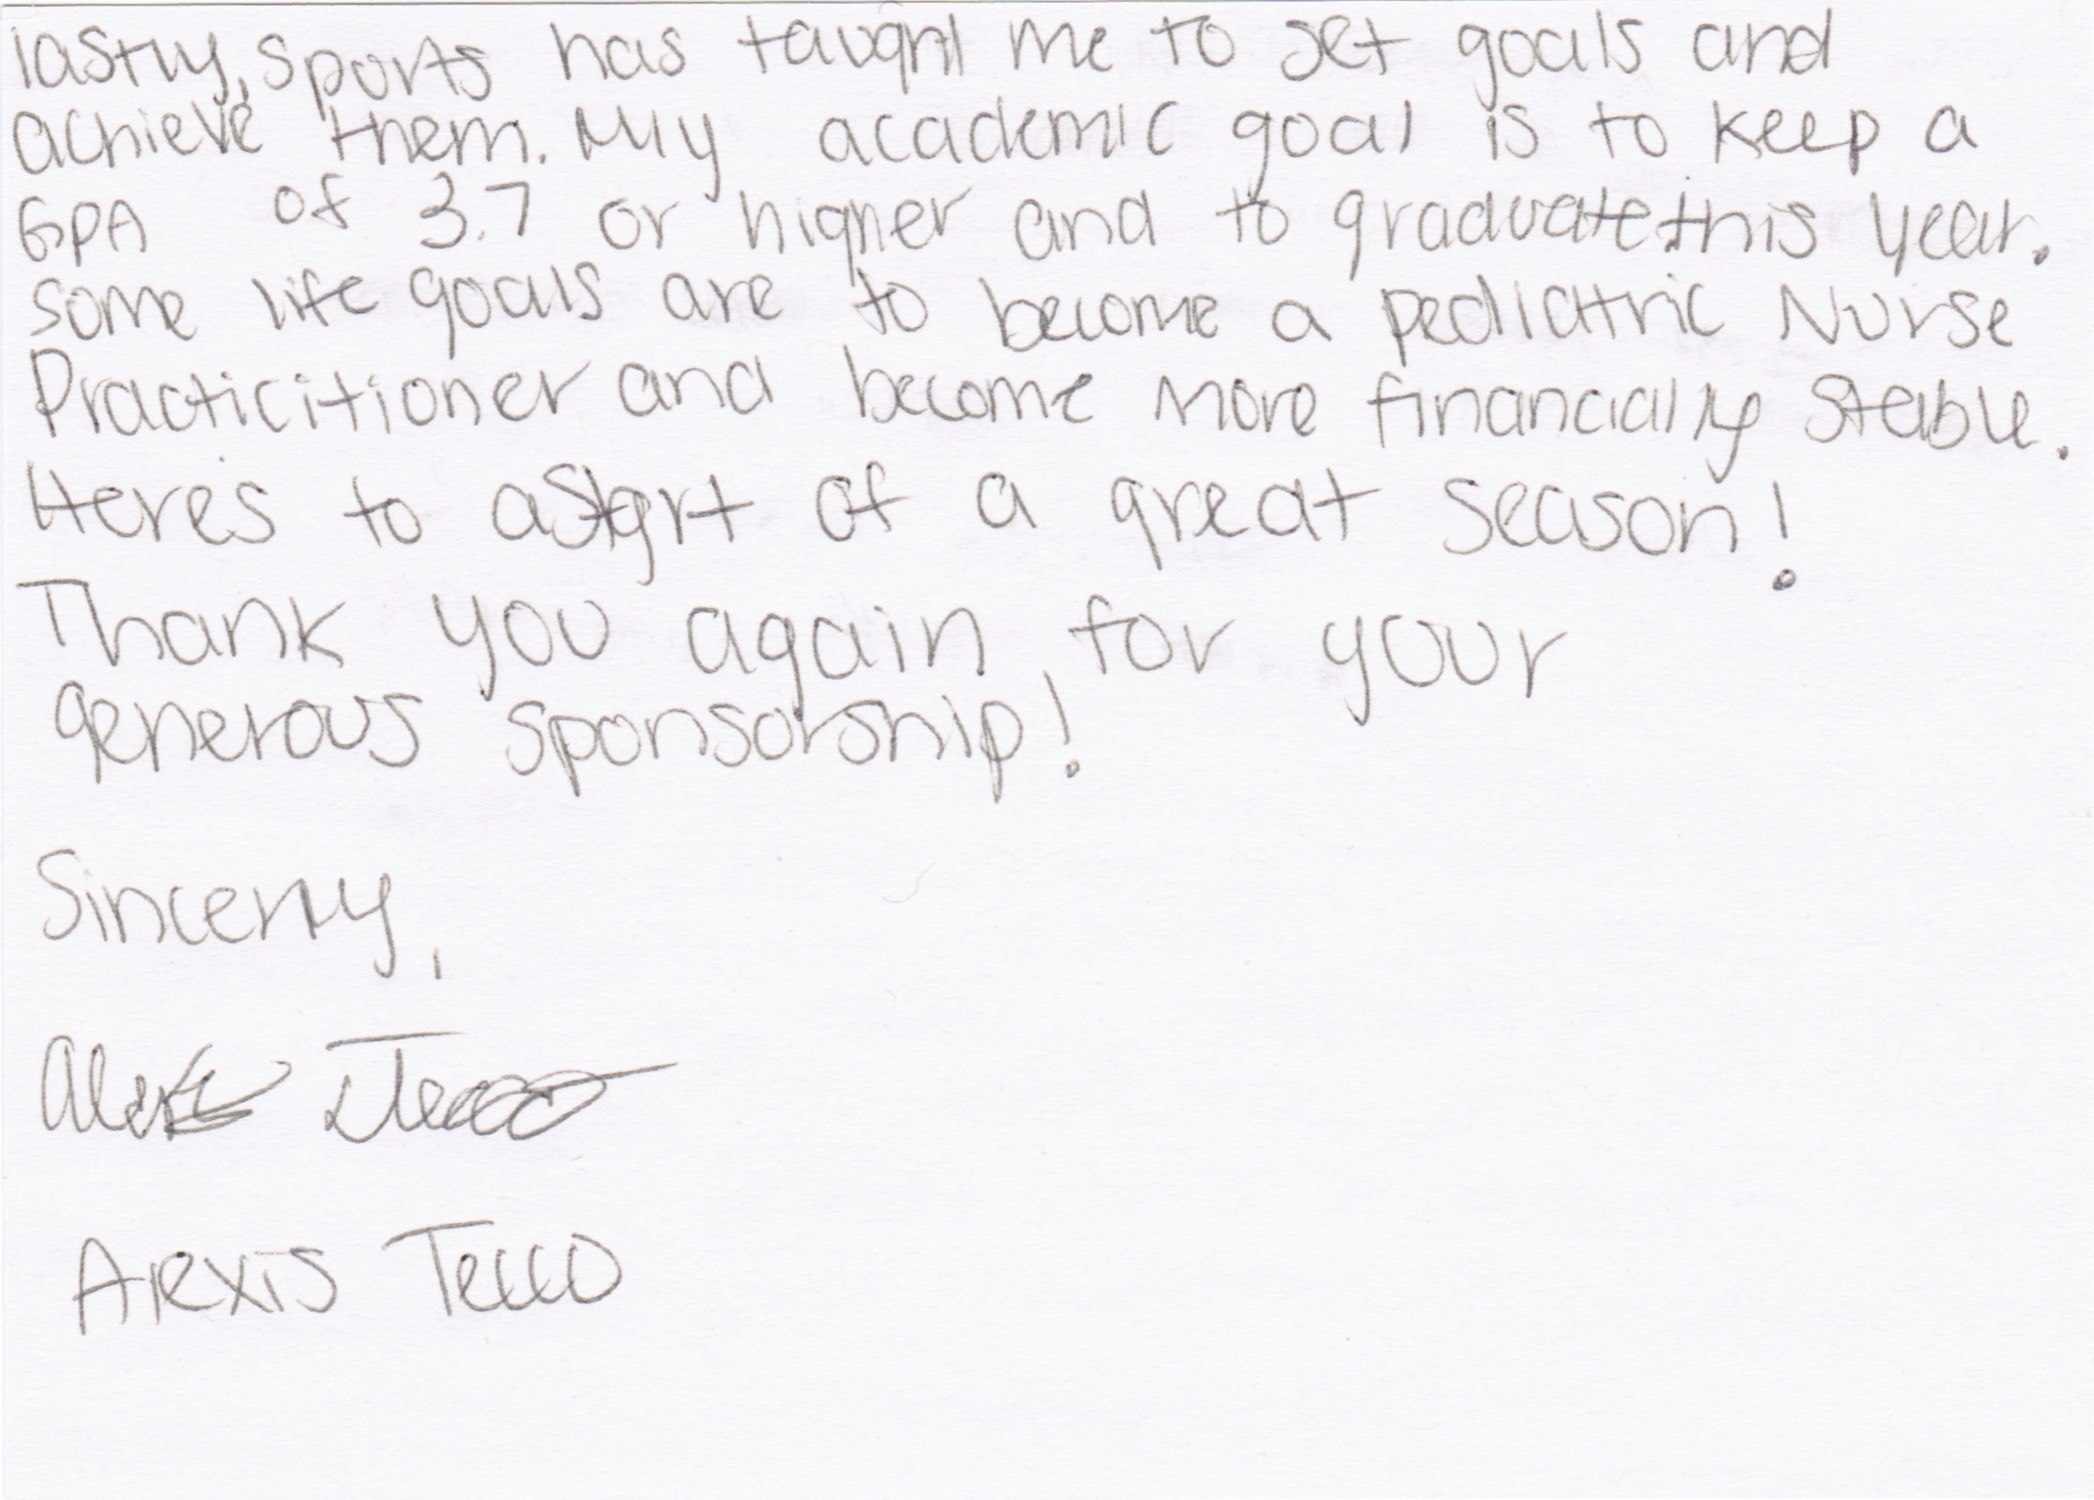 lastly, sports has taught me to set goals and
achieve them. My academic goal is to keep a
GPA of 3.7 or higher and to graduate this year.
some life goals are to become a pediatric Nurse
Practicitioner and become more financially stable.
Heres to a start of a great season!
Thank you again for your
generous sponsorship!
Sincerly,
Alexis Tecco
Alexis Tecco